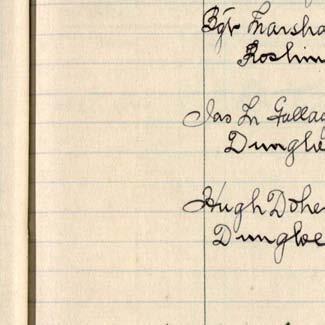 Marsha
Roshin
Jas Gallag
Dunglo
Hugh Dohe
Dungloe